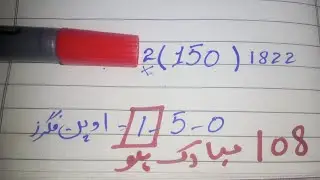 2(150) 1822
اوپن فگرز = 1 - 5 - 0
108 مبارک ہو